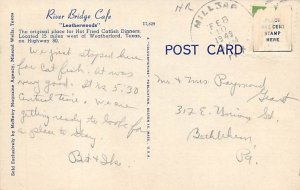 River Bridge Cafe
"Leatherwoods"
The original place for Hot Fried Catfish Dinners.
Located 15 miles west of Weatherford, Texas,
on Highway 80.
We just stopped here
for Cat fish. It was
very good. It is 5.30
Central time. We are
getting ready to look for
a place to stay.
Pat &
Sold Exclusively by McNeny Magazine Agency, Mineral Wells, Texas
POST CARD
MILLSAP
FEB
1949
PLACE
ONE CENT
STAMP
HERE
Mr & Mrs Raymond
312 E. Union St
Bethlehem
Pa.